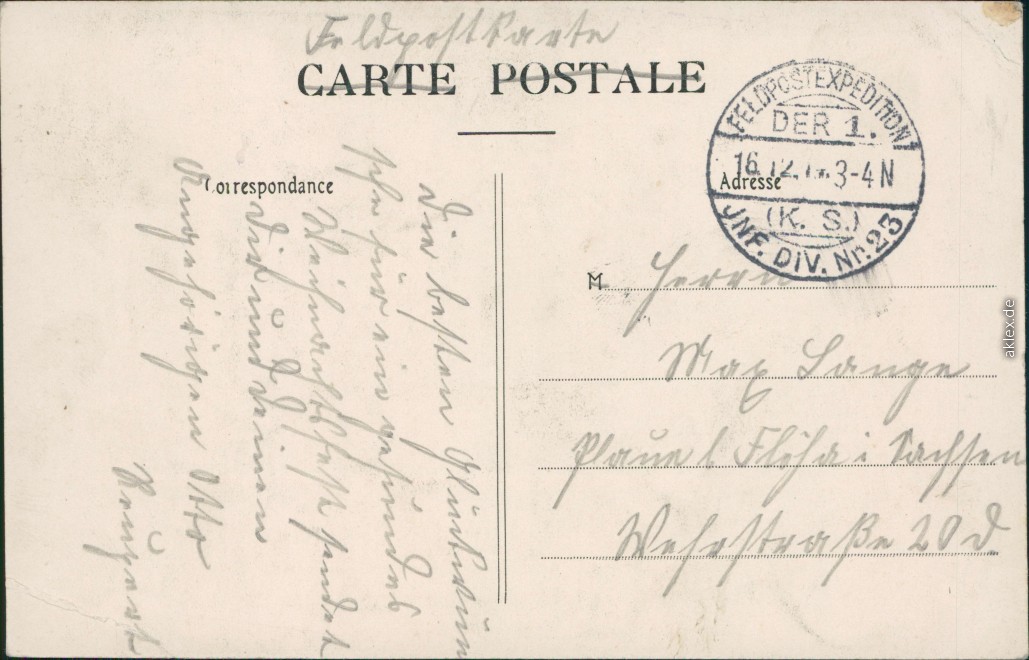 Feldpostkarte
CARTE POSTALE
FELDPOSTEXPEDITION
DER 1.
16.12.14. 3-4 N
(K. S.)
JNF. DIV. Nr. 23
Correspondance
Adresse
Die besten Glückwün
sche für ein gesundes
Weihnachtsfest sendet
Dir und Deinen
Angehörigen Otto
M Herrn
Max Lange
Plaue b Flöha i Sachsen
Wehrstraße 20 d
aklex.de